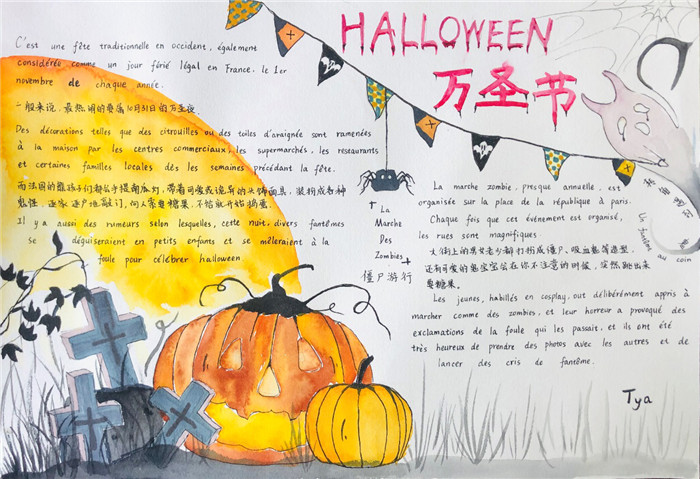 HALLOWEEN
万圣节
C'est une fête traditionnelle en occident, également
considérée comme un jour férié légal en France. le 1er
novembre de chaque année.
一般来说,最热闹的要属10月31日的万圣夜.
Des décorations telles que des citrouilles ou des toiles d'araignée sont ramenées
à la maison par les centres commerciaux, les supermarchés, les restaurants
et certaines familles locales dès les semaines précédant la fête.
而法国的熊孩子们都会手提南瓜灯,带着可爱或诡异的头饰面具,装扮成各种
鬼怪,逐家逐户地敲门,向人索要糖果,不给就开始捣蛋.
Il y a aussi des rumeurs selon lesquelles, cette nuit, divers fantômes
se déguiseraient en petits enfants et se mêleraient à la
foule pour célébrer halloween
La
Marche
Des
Zombies
僵尸游行
La marche zombie, presque annuelle, est
organisée sur la place de la république à paris.
Chaque fois que cet événement est organisé,
les rues sont magnifiques.
大街上的男女老少都打扮成僵尸、吸血鬼等造型,
还有可爱的鬼宝宝会在你不注意的时候,突然跳出来
要糖果.
Les jeunes, habillés en cosplay, out délibérément appris à
marcher comme des zombies, et leur horreur a provoqué des
exclamations de la foule qui les passait, et ils ont été
très heureux de prendre des photos avec les autres et de
lancer des cris de fantôme.
Un fantôme au coin
Tya